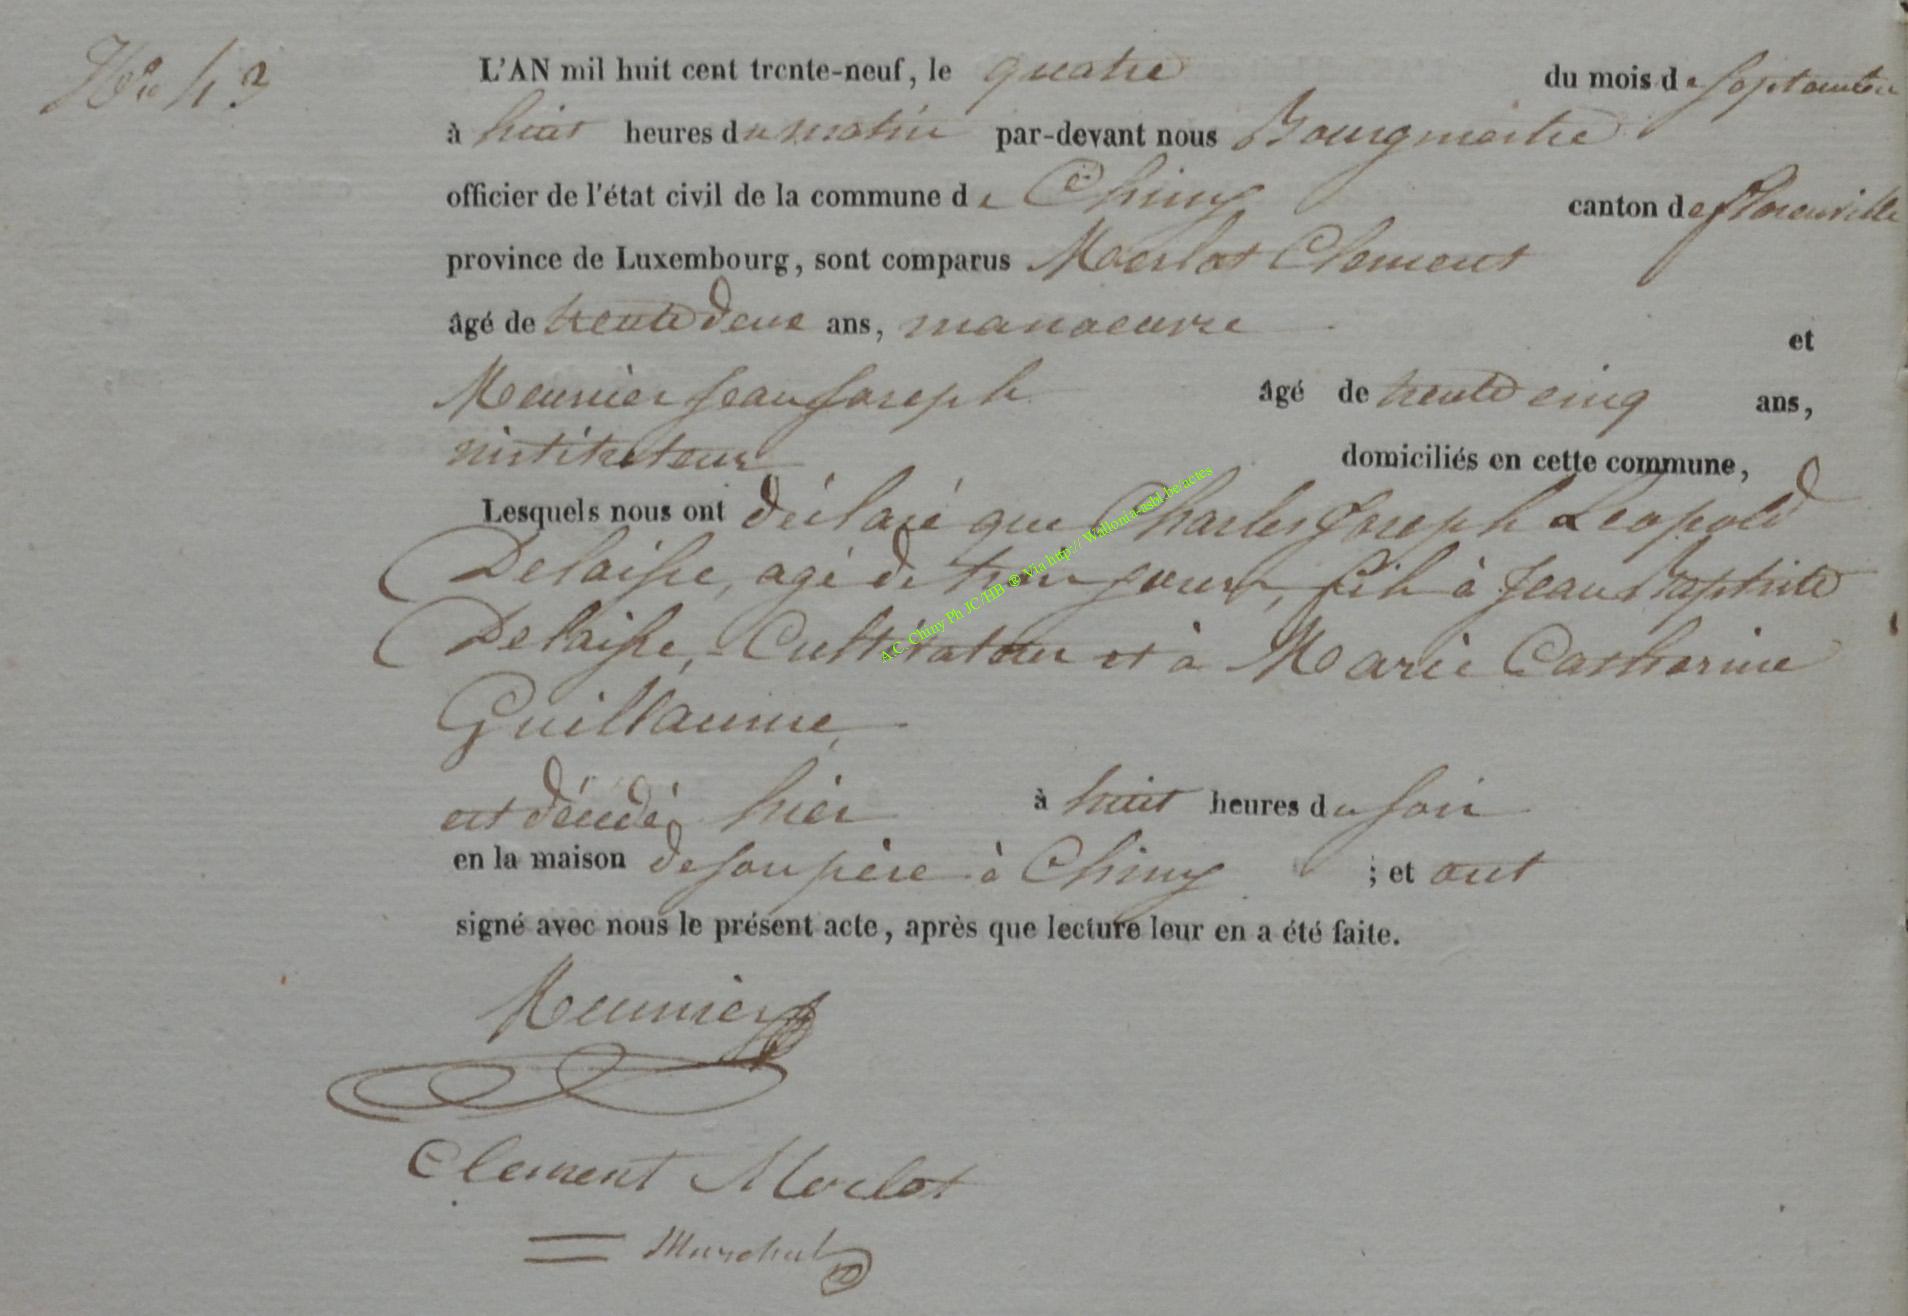 No 43
L'AN mil huit cent trente-neuf, le quatre du mois de septembre
à huit heures du matin par-devant nous Bourgmestre
officier de l'état civil de la commune de Chiny canton de florenville
province de Luxembourg, sont comparus Merlot Clement
âgé de trente deux ans, manoeuvre et
Meunier Jean Joseph âgé de trente cinq ans,
instituteur domiciliés en cette commune,
Lesquels nous ont déclaré que Charles Joseph Leopold
Delaisse, agé de trois jours, fils à Jean Baptiste
Delaisse, Cultivateur et à Marie Catherine
Guillaume,
est décédé hier à huit heures du soir
en la maison de son père à Chiny ; et ont
signé avec nous le présent acte, après que lecture leur en a été faite.
Meunier
Clement Merlot
A.C. Chiny Ph JC/HB ® Via http:// Wallonia-asbl.be/actes